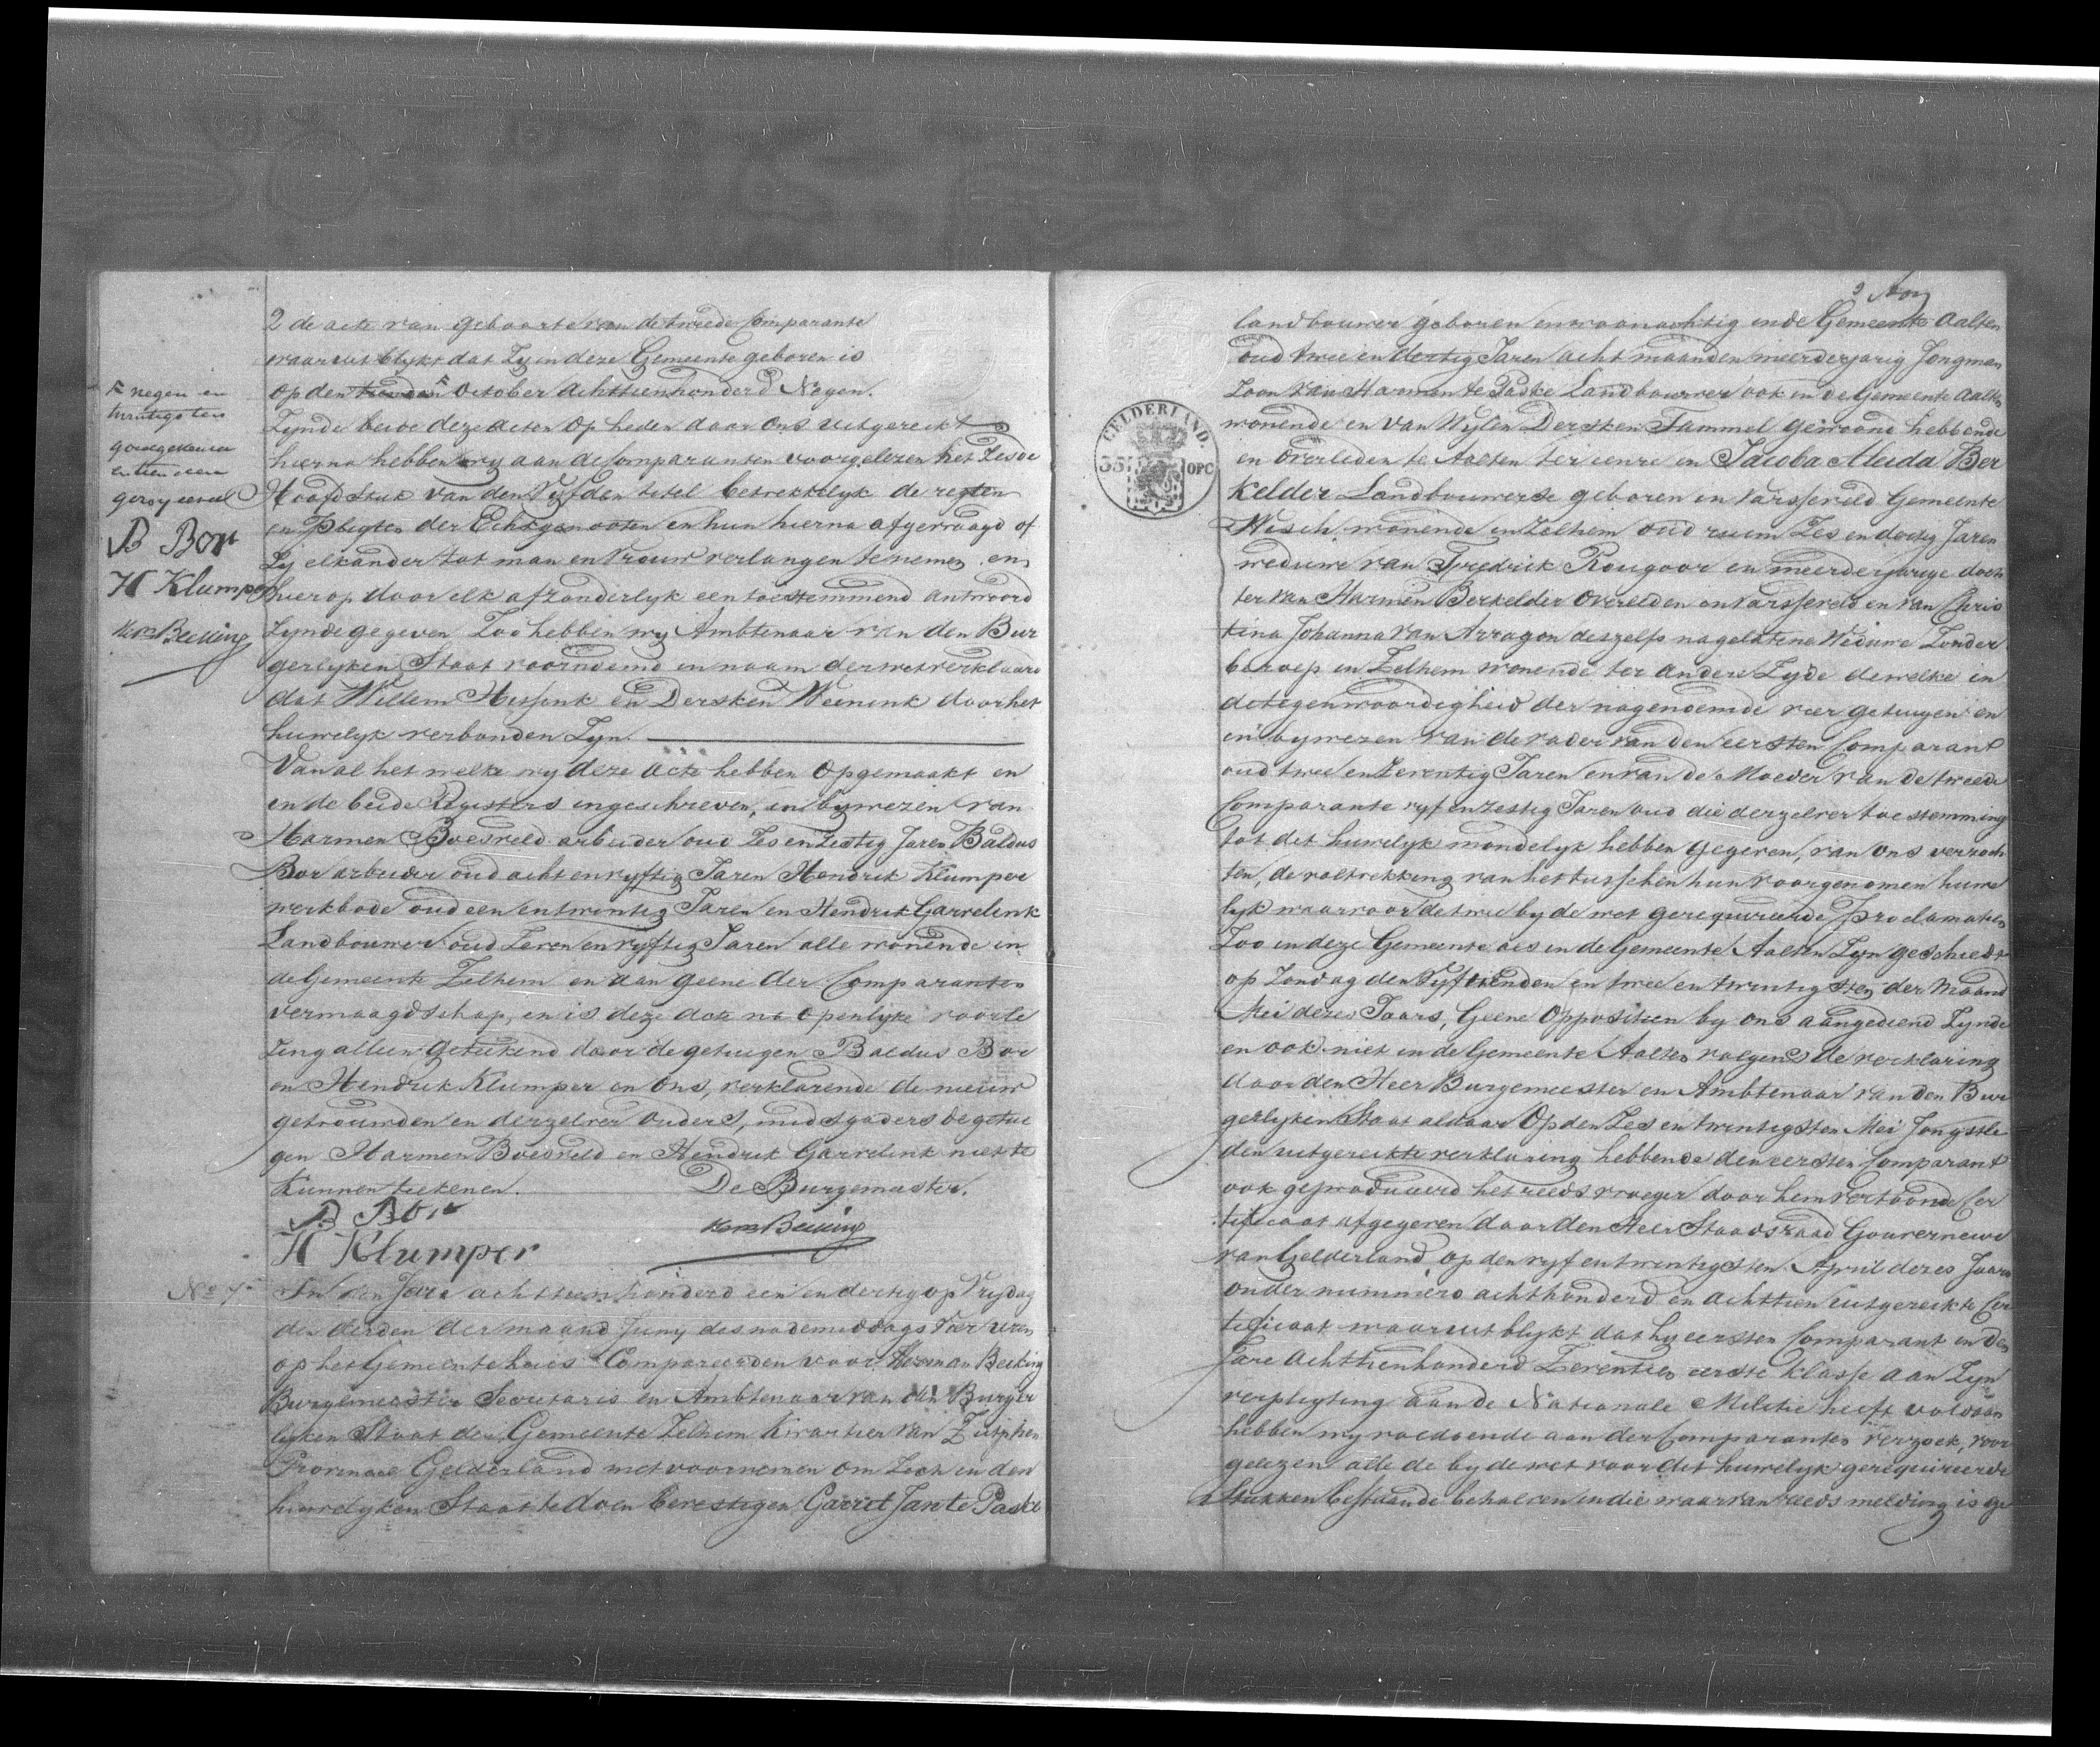 2 de acte van geboorte van de tweede Comparante
waar uit blykt dat Zy in deze Gemeente geboren is
op den October achttienhonderd Negen.
Zynde beide deze acten op heden door ons uitgereikt
hierna hebben wy aan de Comparanten voorgelezen het Zesde
Hoofdstuk van den Vyfden titel betrekkelyk de regten
en Pligten der Echtgenooten en hun hierna afgevraagd of
Zij elkander tot man en Vrouw verlangen te nemen en
hierop door elk afzonderlyk een toestemmend antwoord
Zynde gegeven Zoo hebben wy Ambtenaar van den Bur
gerlyken Staat voornoemd in naam der wet verklaard
dat Willem Hissink en Dersken Weenink door het
huwelyk verbonden Zyn.
Van al het welke wy deze acte hebben opgemaakt en
in de beide Registers ingeschreven, in bywezen van
Harmen Boesveld arbeider oud Zes en Zestig Jaren Baldus
Bor arbeider oud acht en vyftig Jaren Hendrik Klumper
werkbode oud een en twintig Jaren en Hendrik Garrelink
Landbouwer oud Zeven en vyftig Jaren alle wonende in
de Gemeente Zelhem en aan geene der Comparanten
vermaagdschap, en is deze acte na openlyke voorle
Zing alleen geteekend door de getuigen Baldus Bor
en Hendrik Klumper en ons, verklarende de nieuw
getrouwden en derzelver ouders, midsgaders de getui
gen Harmen Boesveld en Hendrik Garrelink niet te
Kunnen teekenen. De Burgemaster.
B Bor
H Klumper
Herm Becking
negen en
twintigsten
goedgekeurd
B Bor
H Klumper
Herm Becking
No 7
In den Jare achttienhonderd een en dertig op Vrijdag
den derden der maand Juny des nademiddags vier uren
op het Gemeentehuis Compareerden voor Herman Becking
Burgemeester Secretaris en Ambtenaar van den Burger
lyken Staat der Gemeente Zelhem Kwartier van Zutphen
Provincie Gelderland met voornemen om Zich in den
huwelyken Staat te doen bevestigen Garrit Jan te Paske
GELDERLAND.
OPC
landbouwer geboren en woonachtig in de Gemeente Aalten
oud twee en dertig Jaren acht maanden meerderjarig Jongman
Zoon van Harmen te Paske Landbouwer ook in de Gemeente Aalten
wonende en van Wylen Dersken Tammel gewoond hebbende
en overleden te Aalten ter eenre en Jacoba Aleida Ber
Kelder Landbouwerse geboren in Varsseveld Gemeente
Wisch wonende in Zelhem oud ruim Zes en dertig Jaren
weduwe van Fredrik Rougoor en meerderjarige doch
ter van Harmen Berkelder overleden in Varsseveld en van Chris
tina Johanna van Arragon deszelfs nagelatene Weduwe Zonder
beroep in Zelhem wonende ter andere Zyde dewelke in
de tegenwoordigheid der nagenoemde vier getuigen en
in bywezen van de vader van den eersten Comparant
oud twee en Zeventig Jaren en van de Moeder van de tweede
Comparante vyf en zestig Jaren oud die derzelver toestemming
tot dit huwelyk mondelyk hebben gegeven, van ons verzoch
ten, de voltrekking van het tusschen hun voorgenomen huwe
lyk waarvoor de twee by de wet gerequireerde Proclamatien
Zoo in deze Gemeente als in de Gemeente Aalten Zyn geschiedt
op Zondag den Vyftienden en twee en twintigsten der maand
Mei dezes Jaars, Geene Oppositien by ons aangediend Zynde
en ook niet in de Gemeente Aalten volgens de verklaring
door den Heer Burgemeester en Ambtenaar van den Bur
gerlyken Staat aldaar op den Zes en twintigsten Mei Jongstle
den uitgereikte verklaring hebbende den eersten Comparant
ook geproduceerd het reeds vroeger door hem vertoonde Cer
tificaat afgegeven door den Heer Staadsraad Gouverneur
van Gelderland op den vyf en twintigsten April dezes Jaars
onder nummero achthonderd en achttien uitgereikte Cer
tificaat waaruit blykt dat hy eersten Comparant in den
Jare Achttienhonderd Zeventien eerste Klasse aan Zyn
verpligting aan de Nationale Militie heeft voldaan
hebben wy voldoende aan der Comparanten verzoek, voor
gelezen alle de by de wet voor dit huwelyk gerequireerde
Stukken bestaande behalven in die waarvan reeds melding is ge